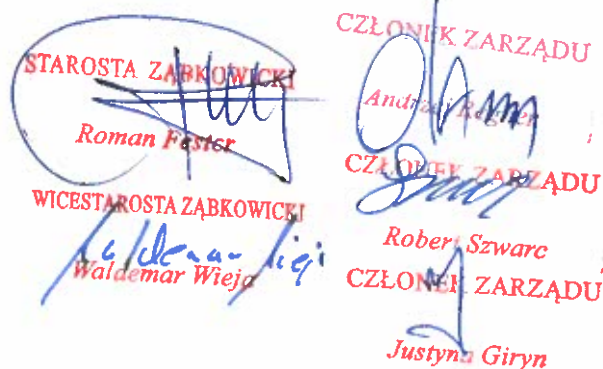 STAROSTA ZĄBKOWICKI
Roman Fester
WICESTAROSTA ZĄBKOWICKI
Waldemar Wieja
CZŁONEK ZARZĄDU
Andrzej Regner
CZŁONEK ZARZĄDU
Robert Szwarc
CZŁONEK ZARZĄDU
Justyna Giryn